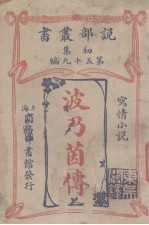 說部叢書
初集
第五十九編
寫情小說
波乃茵傳
上海
商務印書館發行